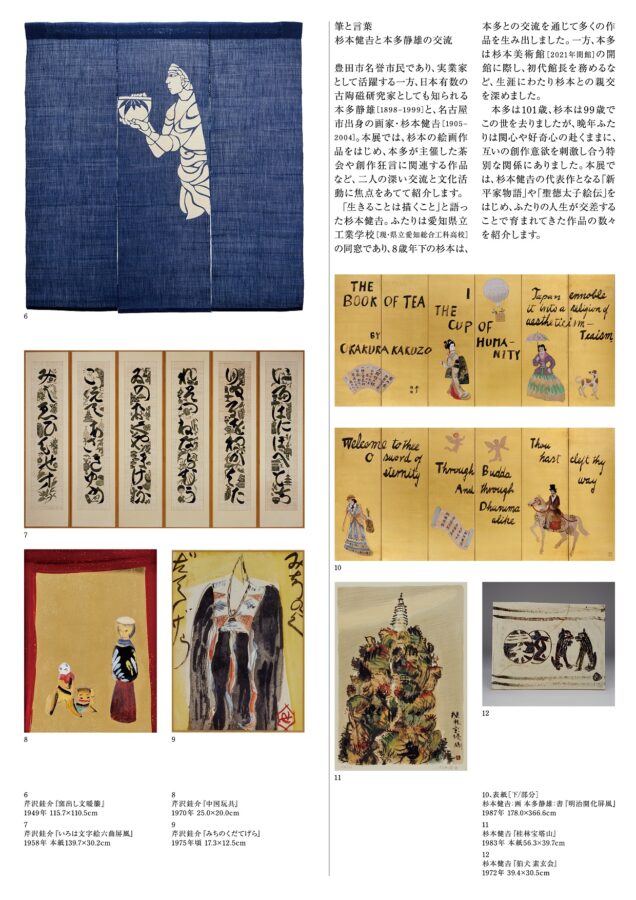 筆と言葉
杉本健𠮷と本多静雄の交流
豊田市名誉市民であり、実業家
として活躍する一方、日本有数の
古陶磁研究家としても知られる
本多静雄[1898–1999]と、名古屋
市出身の画家・杉本健𠮷[1905–
2004]。本展では、杉本の絵画作
品をはじめ、本多が主催した茶
会や創作狂言に関連する作品
など、二人の深い交流と文化活
動に焦点をあてて紹介します。
「生きることは描くこと」と語っ
た杉本健𠮷。ふたりは愛知県立
工業学校[現・県立愛知総合工科高校]
の同窓であり、8歳年下の杉本は、
本多との交流を通じて多くの作
品を生み出しました。一方、本多
は杉本美術館[2021年閉館]の開
館に際し、初代館長を務めるな
ど、生涯にわたり杉本との親交
を深めました。
本多は101歳、杉本は99歳で
この世を去りましたが、晩年ふた
りは関心や好奇心の赴くままに、
互いの創作意欲を刺激し合う特
別な関係にありました。本展で
は、杉本健𠮷の代表作となる「新・
平家物語」や「聖徳太子絵伝」を
はじめ、ふたりの人生が交差する
ことで育まれてきた作品の数々
を紹介します。
6
いろはにほへとち
りぬるをわかよた
れそつねならむう
ゐのおくやまけふ
こえてあさきゆめ
みしゑひもせす
7
THE
BOOK OF TEA
BY
OKAKURA KAKUZO
I
THE
CUP OF
HUMA-
NITY
Japan ennoble
it into a religion of
aestheticism—
Teaism
Welcome to thee
O sword of
eternity
Through Budda
And through
Dharuma
alike
Thou
hast cleft thy
way
10
みちのく
だてげら
8
9
桂林宝塔山
11
12
6
芹沢銈介『窯出し文暖簾』
1949年 115.7×110.5cm
7
芹沢銈介『いろは文字絵六曲屏風』
1958年 本紙139.7×30.2cm
8
芹沢銈介『中国玩具』
1970年 25.0×20.0cm
9
芹沢銈介『みちのくだてげら』
1975年頃 17.3×12.5cm
10、表紙[下/部分]
杉本健𠮷:画 本多静雄:書『明治開化屏風』
1987年 178.0×366.6cm
11
杉本健𠮷『桂林宝塔山』
1983年 本紙56.3×39.7cm
12
杉本健𠮷『狛犬 素玄会』
1972年 39.4×30.5cm